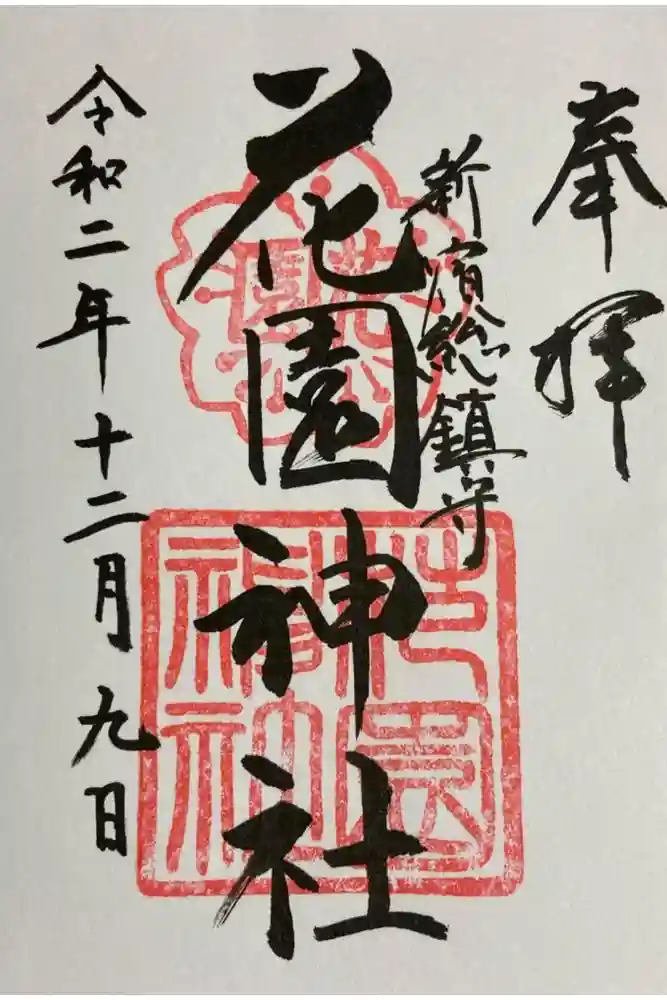 奉拝
新宿総鎮守
花園神社
令和二年十二月九日
花園
花園神社